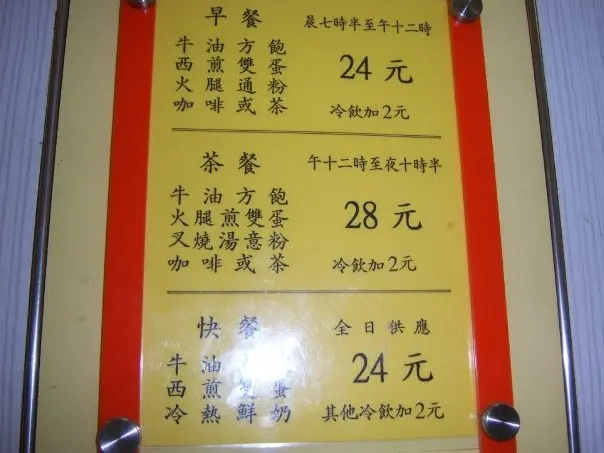 早餐 晨七時半至午十二時
牛油方飽
西煎雙蛋
火腿通粉
咖啡或茶
24元
冷飲加2元
茶餐 午十二時至夜十時半
牛油方飽
火腿煎雙蛋
叉燒湯意粉
咖啡或茶
28元
冷飲加2元
快餐 全日供應
牛油
西煎雙蛋
冷熱鮮奶
24元
其他冷飲加2元